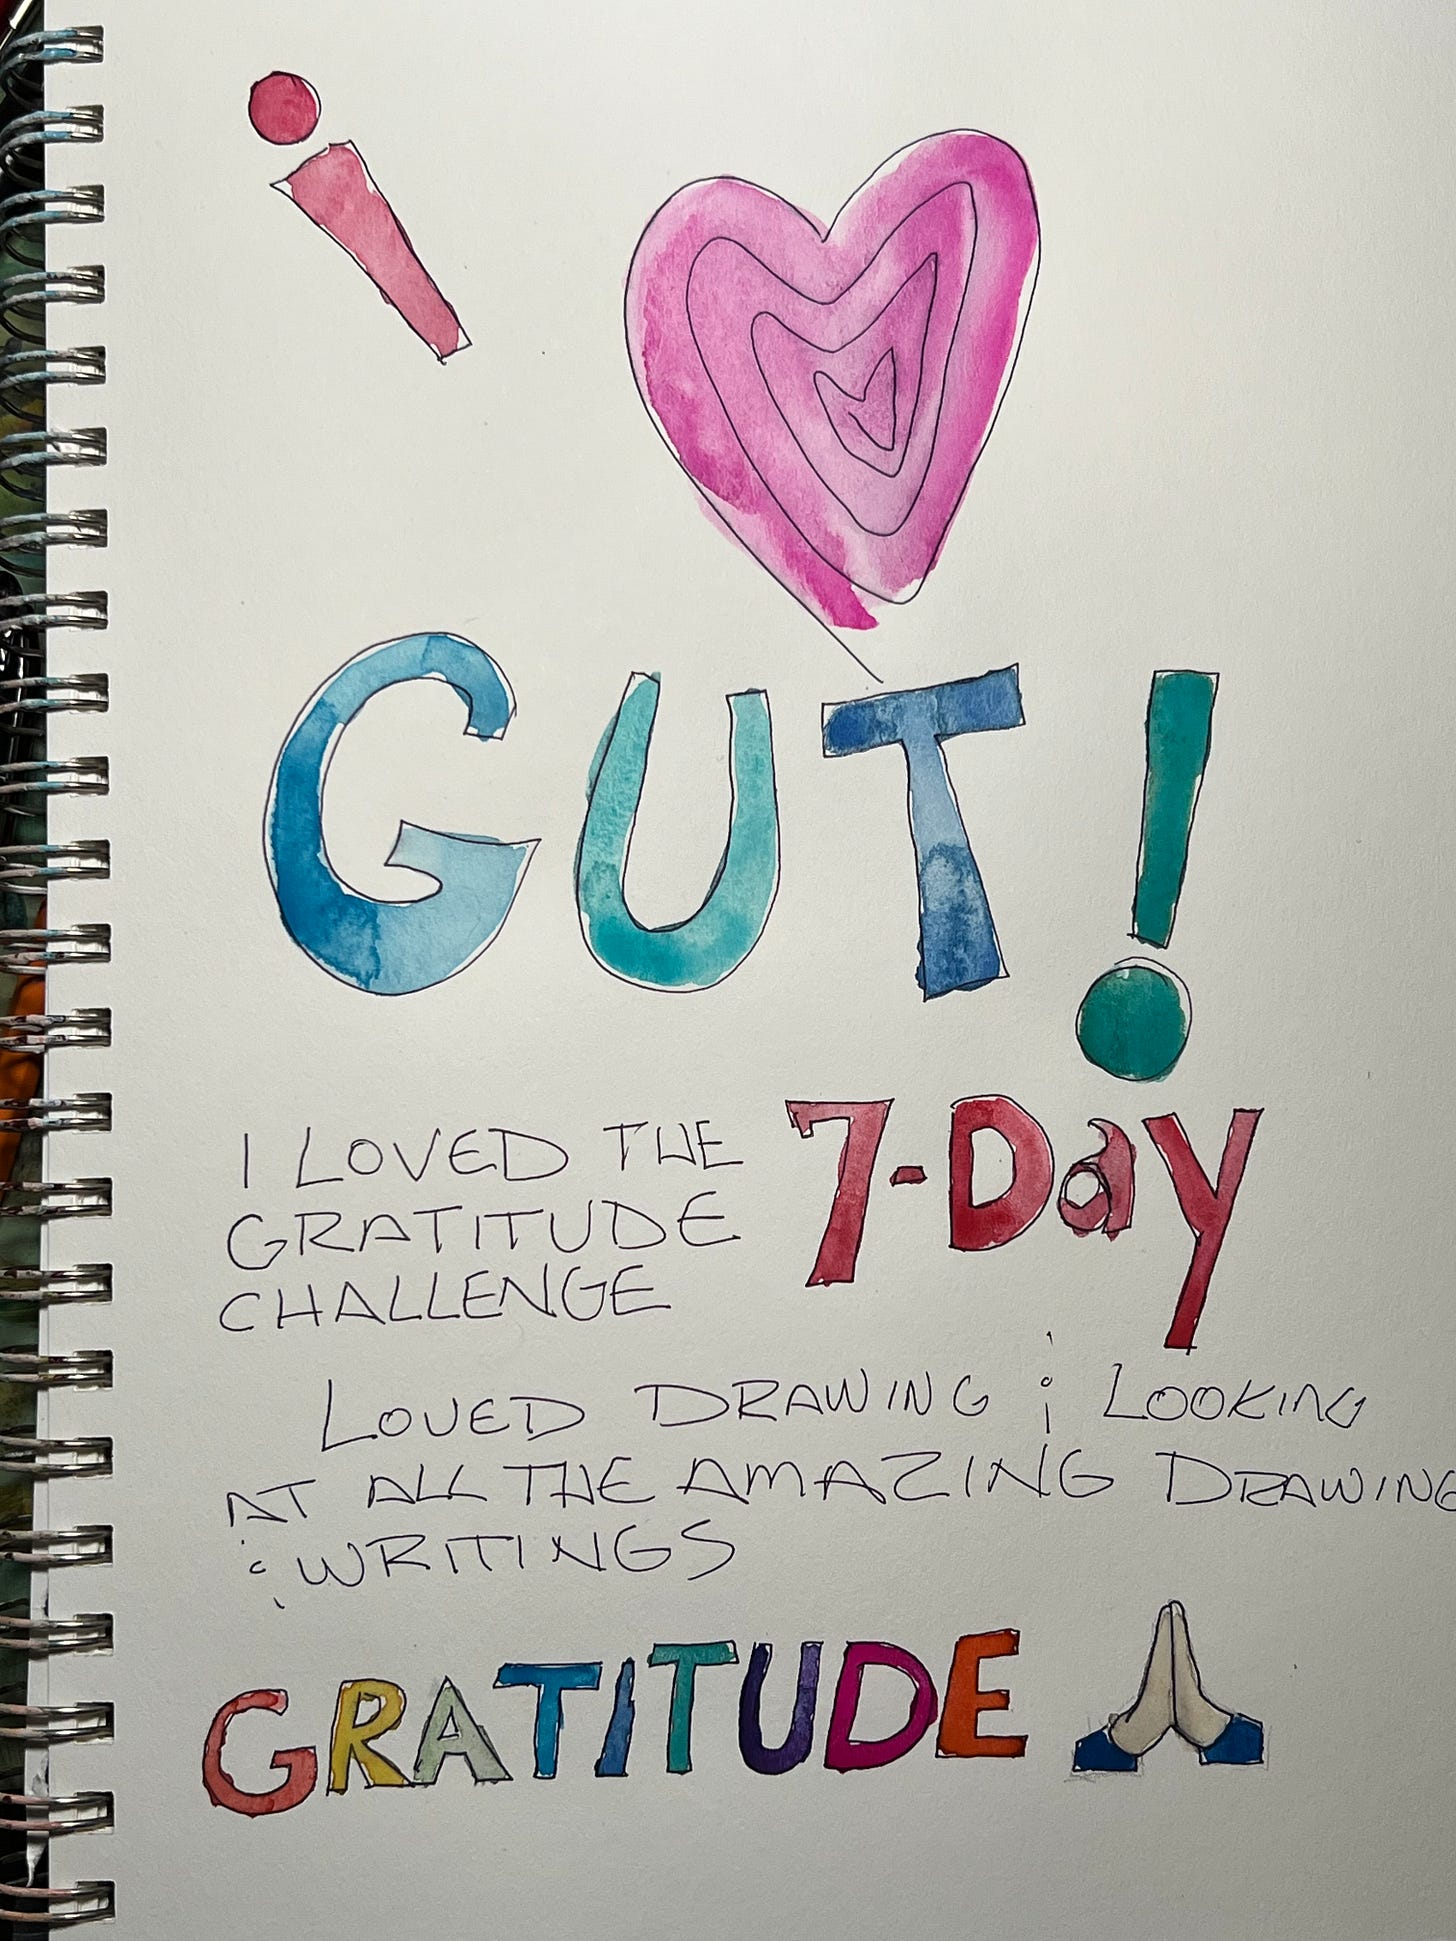 i
GUT!
I LOVED THE 7-Day
GRATITUDE
CHALLENGE
LOVED DRAWING & LOOKING
AT ALL THE AMAZING DRAWING
& WRITINGS
GRATITUDE